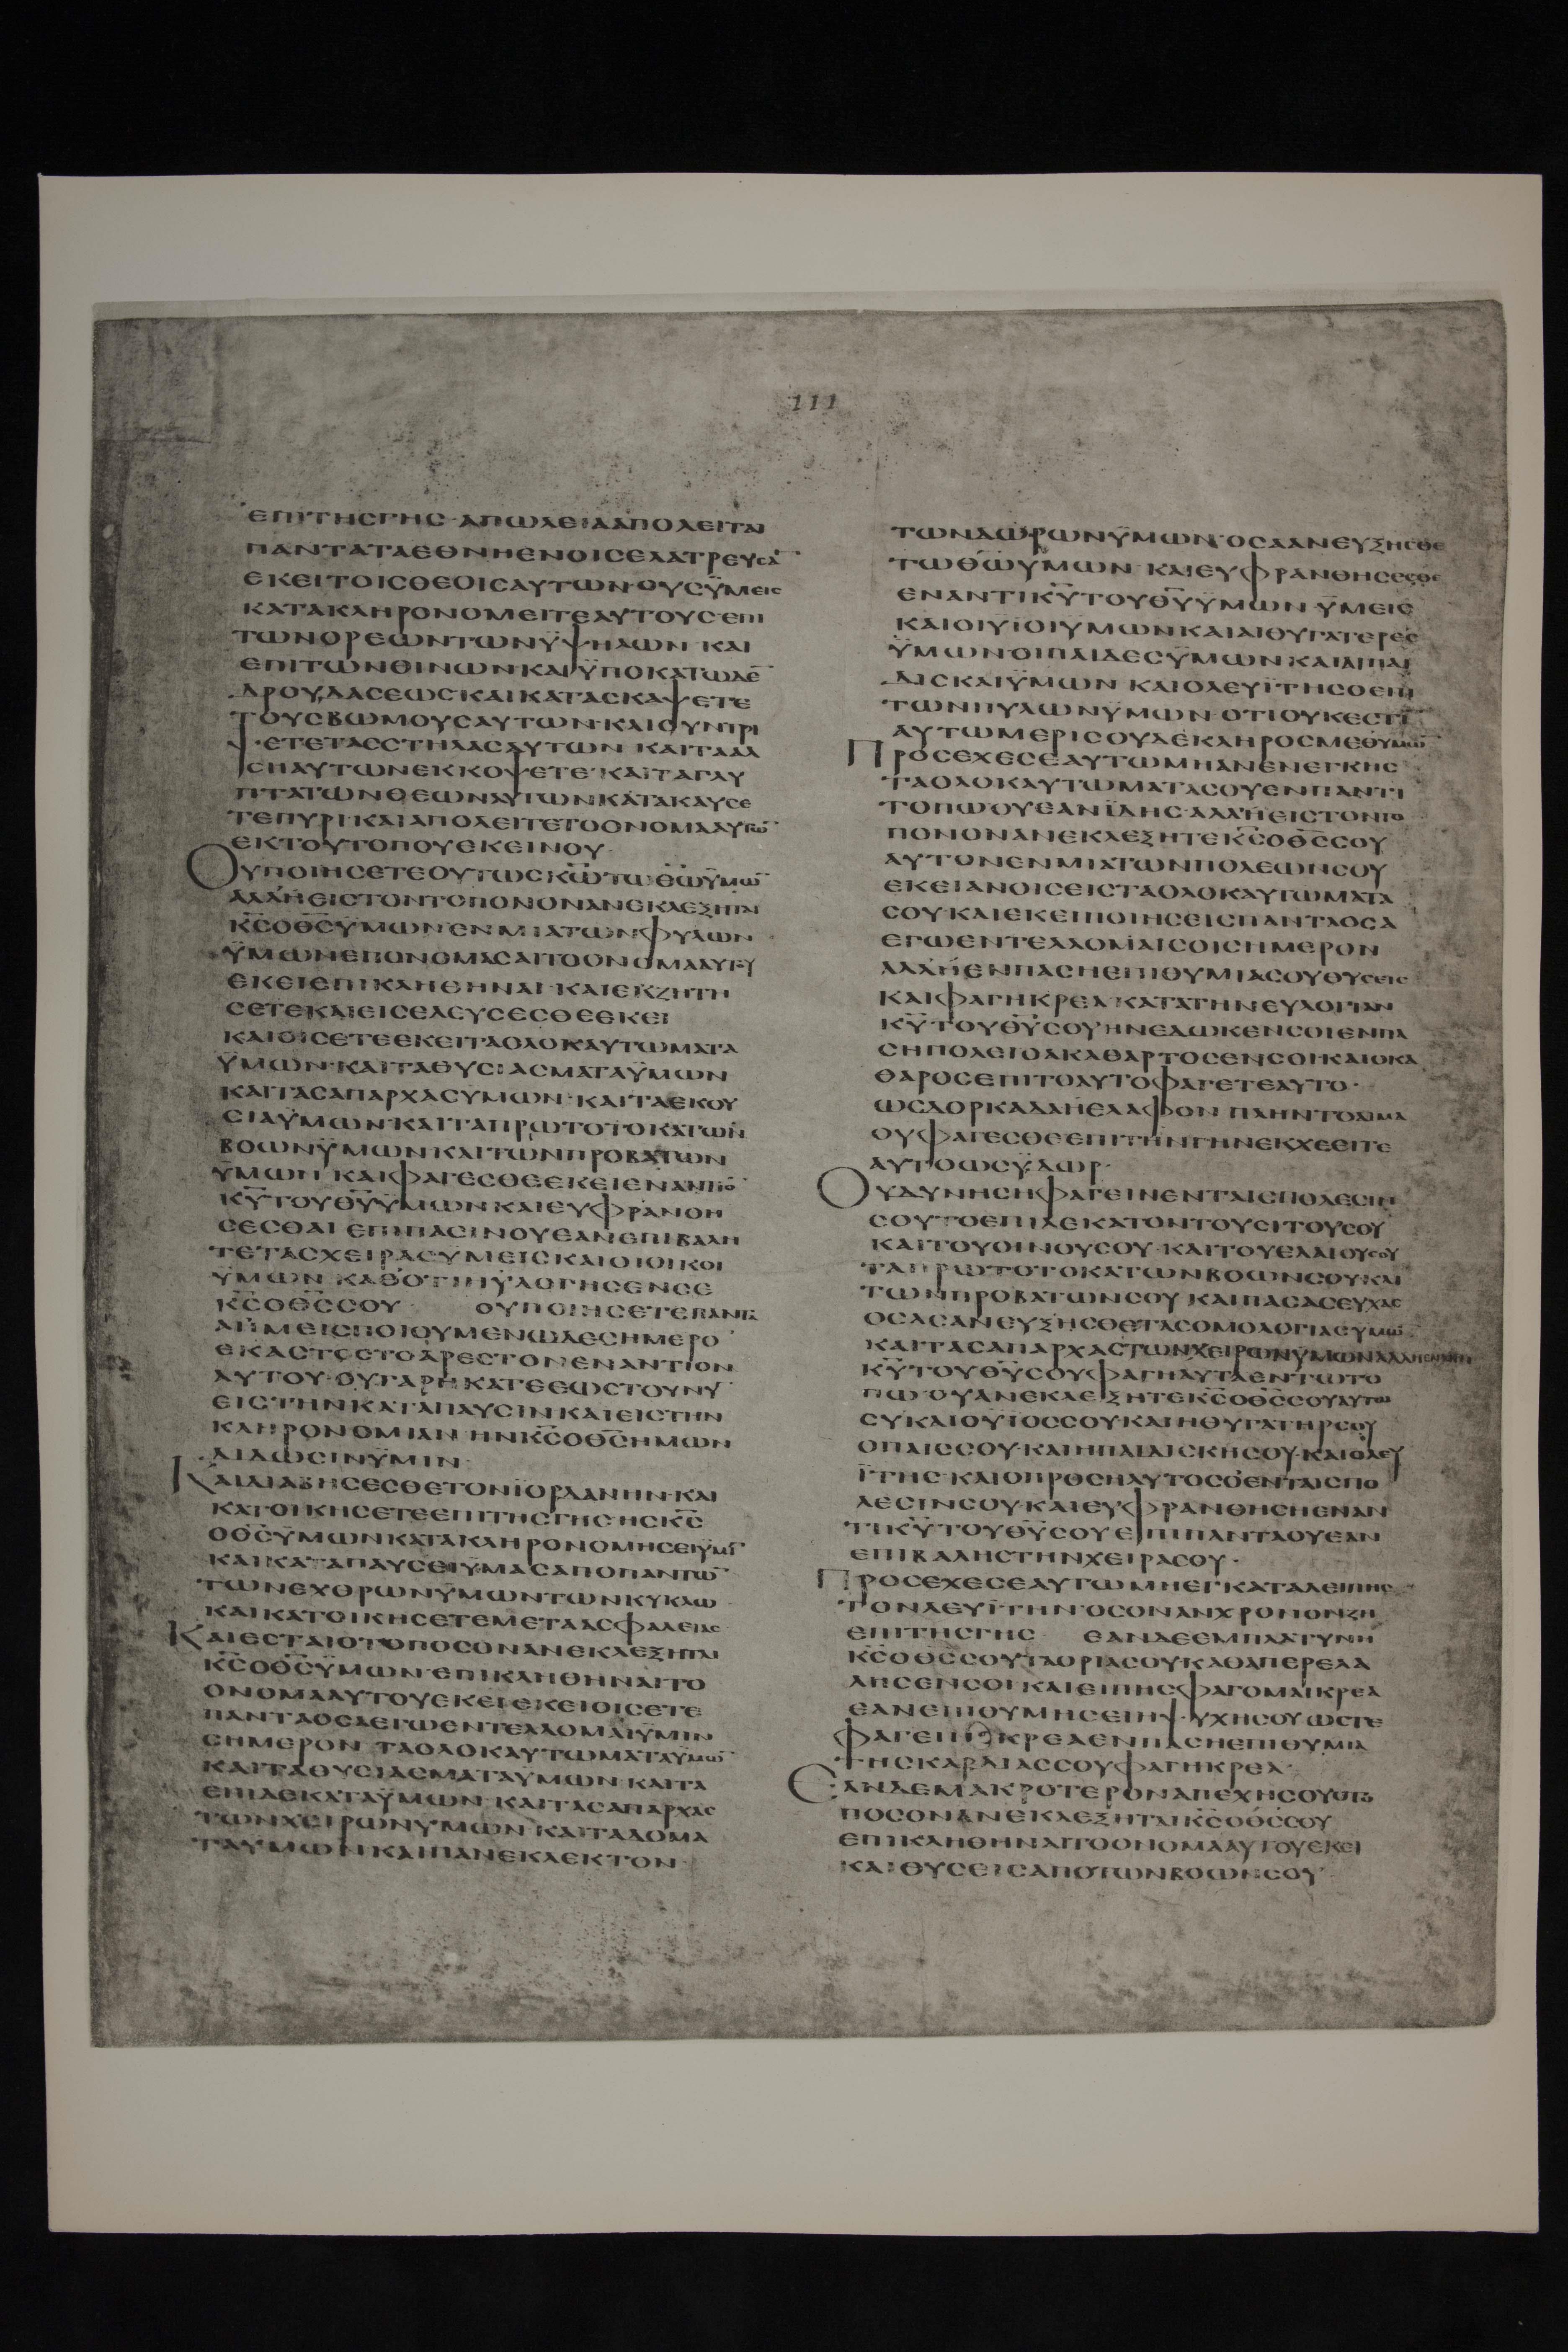 111
ΕΠΙΤΗΣΓΗΣ·ΑΠΩΛΕΙΑΑΠΟΛΕΙΤΑΙ
ΠΑΝΤΑΤΑΕΘΝΗΕΝΟΙΣΕΛΑΤΡΕΥΣᾹ
ΕΚΕΙΤΟΙΣΘΕΟΙΣΑΥΤΩΝ·ΟΥΣΫΜΕΙΣ
ΚΑΤΑΚΛΗΡΟΝΟΜΕΙΤΕΑΥΤΟΥΣ·ΕΠΙ
ΤΩΝΟΡΕΩΝΤΩΝΫΨΗΛΩΝ·ΚΑΙ
ΕΠΙΤΩΝΘΙΝΩΝ·ΚΑΙΫΠΟΚΑΤΩΔΕ̄
ΔΡΟΥΔΑΣΕΩΣ·ΚΑΙΚΑΤΑΣΚΑΨΕΤΕ
ΤΟΥΣΒΩΜΟΥΣΑΥΤΩΝ·ΚΑΙΣΥΝΤΡΙ
ΨΕΤΕΤΑΣΣΤΗΛΑΣΑΥΤΩΝ·ΚΑΙΤΑΑΛ
ΣΗΑΥΤΩΝΕΚΚΟΨΕΤΕ·ΚΑΙΤΑΓΛΥ
ΠΤΑΤΩΝΘΕΩΝΑΥΤΩΝΚΑΤΑΚΑΥΣΕ
ΤΕΠΥΡΙ·ΚΑΙΑΠΟΛΕΙΤΕΤΟΟΝΟΜΑΑΥΤΩ̄
ΕΚΤΟΥΤΟΠΟΥΕΚΕΙΝΟΥ·
ΟΥΠΟΙΗΣΕΤΕΟΥΤΩΣΚ̄Ω̄ΤΩΘ̄Ω̄ΫΜΩ̄
ΑΛΛΗΕΙΣΤΟΝΤΟΠΟΝΟΝΑΝΕΚΛΕΞΗΤΑΙ
Κ̄Σ̄ΟΘ̄Σ̄ΫΜΩΝΕΝΜΙΑΤΩΝΦΥΛΩΝ
ΫΜΩΝΕΠΟΝΟΜΑΣΑΙΤΟΟΝΟΜΑΑΥΤΟΥ
ΕΚΕΙΕΠΙΚΛΗΘΗΝΑΙ·ΚΑΙΕΚΖΗΤΗ
ΣΕΤΕΚΑΙΕΙΣΕΛΕΥΣΕΣΘΕΕΚΕΙ
ΚΑΙΟΙΣΕΤΕΕΚΕΙΤΑΟΛΟΚΑΥΤΩΜΑΤΑ
ΫΜΩΝ·ΚΑΙΤΑΘΥΣΙΑΣΜΑΤΑΫΜΩΝ
ΚΑΙΤΑΣΑΠΑΡΧΑΣΥΜΩΝ·ΚΑΙΤΑΕΚΟΥ
ΣΙΑΫΜΩΝ·ΚΑΙΤΑΠΡΩΤΟΤΟΚΑΤΩΝ
ΒΟΩΝΫΜΩΝΚΑΙΤΩΝΠΡΟΒΑΤΩΝ
ΫΜΩΝ·ΚΑΙΦΑΓΕΣΘΕΕΚΕΙΕΝΑΝΤΙΟ̄
Κ̄Ῡ̄ΤΟΥΘ̄Ῡ̄ΫΜΩΝΚΑΙΕΥΦΡΑΝΘΗ
ΣΕΣΘΑΙ·ΕΠΙΠΑΣΙΝΟΥΕΑΝΕΠΙΒΑΛΗ
ΤΕΤΑΣΧΕΙΡΑΣΫΜΕΙΣΚΑΙΟΙΟΙΚΟΙ
ΫΜΩΝ·ΚΑΘΟΤΙΗΫΛΟΓΗΣΕΝΣΕ
Κ̄Σ̄ΟΘ̄Σ̄ΣΟΥ· ΟΥΠΟΙΗΣΕΤΕΠΑΝΤΑ
ΑΗΜΕΙΣΠΟΙΟΥΜΕΝΩΔΕΣΗΜΕΡΟ̄
ΕΚΑΣΤΟΣΤΟΑΡΕΣΤΟΝΕΝΑΝΤΙΟΝ
ΑΥΤΟΥ·ΟΥΓΑΡΗΚΑΤΕΕΩΣΤΟΥΝῩ
ΕΙΣΤΗΝΚΑΤΑΠΑΥΣΙΝΚΑΙΕΙΣΤΗΝ
ΚΛΗΡΟΝΟΜΙΑΝ·ΗΝΚ̄Σ̄ΟΘ̄Σ̄ΗΜΩΝ
ΔΙΔΩΣΙΝΥΜΙΝ·
ΚΑΙΔΙΑΒΗΣΕΣΘΕΤΟΝΪΟΡΔΑΝΗΝ·ΚΑΙ
ΚΑΤΟΙΚΗΣΕΤΕΕΠΙΤΗΣΓΗΣΗΣΚ̄Σ̄
ΟΘ̄Σ̄ΫΜΩΝΚΑΤΑΚΛΗΡΟΝΟΜΗΣΕΙΫΜῙ
ΚΑΙΚΑΤΑΠΑΥΣΕΙΫΜΑΣΑΠΟΠΑΝΤΩ̄
ΤΩΝΕΧΘΡΩΝΫΜΩΝΤΩΝΚΥΚΛΩ
ΚΑΙΚΑΤΟΙΚΗΣΕΤΕΜΕΤΑΑΣΦΑΛΕΙΑΣ
ΚΑΙΕΣΤΑΙΟΤΟΠΟΣΟΝΑΝΕΚΛΕΞΗΤΑΙ
Κ̄Σ̄ΟΘ̄Σ̄ΫΜΩΝ·ΕΠΙΚΛΗΘΗΝΑΙΤΟ
ΟΝΟΜΑΑΥΤΟΥΕΚΕΙ·ΕΚΕΙΟΙΣΕΤΕ
ΠΑΝΤΑΟΣΑΕΓΩΕΝΤΕΛΛΟΜΑΙΫΜΙΝ
ΣΗΜΕΡΟΝ·ΤΑΟΛΟΚΑΥΤΩΜΑΤΑΫΜΩ̄
ΚΑΙΤΑΘΥΣΙΑΣΜΑΤΑΫΜΩΝ·ΚΑΙΤΑ
ΕΠΙΔΕΚΑΤΑΫΜΩΝ·ΚΑΙΤΑΣΑΠΑΡΧΑΣ
ΤΩΝΧΕΙΡΩΝΥΜΩΝ·ΚΑΙΤΑΔΟΜΑ
ΤΑΥΜΩΝ·ΚΑΙΠΑΝΕΚΛΕΚΤΟΝ
ΤΩΝΔΩΡΩΝΫΜΩΝ·ΟΣΑΑΝΕΥΞΗΣΘΕ
ΤΩΘ̄Ω̄ΥΜΩΝ·ΚΑΙΕΥΦΡΑΝΘΗΣΕΣΘΕ
ΕΝΑΝΤΙΚ̄Ῡ̄ΤΟΥΘ̄Ῡ̄ΫΜΩΝ·ΫΜΕΙΣ
ΚΑΙΟΙΥΪΟΙΥΜΩΝΚΑΙΑΙΘΥΓΑΤΕΡΕΣ
ΫΜΩΝΟΙΠΑΙΔΕΣΫΜΩΝΚΑΙΑΙΠΑΙ
ΔΙΣΚΑΙΫΜΩΝ·ΚΑΙΟΛΕΥΪΤΗΣΟΕΠΙ
ΤΩΝΠΥΛΩΝΥΜΩΝ·ΟΤΙΟΥΚΕΣΤῙ
ΑΥΤΩΜΕΡΙΣΟΥΔΕΚΛΗΡΟΣΜΕΘΥΜΩ̄
ΠΡΟΣΕΧΕΣΕΑΥΤΩΜΗΑΝΕΝΕΓΚΗΣ
ΤΑΟΛΟΚΑΥΤΩΜΑΤΑΣΟΥΕΝΠΑΝΤΙ
ΤΟΠΩΟΥΕΑΝΪΔΗΣ·ΑΛΛΗΕΙΣΤΟΝΤΟ
ΠΟΝΟΝΑΝΕΚΛΕΞΗΤΕΚ̄Σ̄ΟΘ̄Σ̄ΣΟΥ
ΑΥΤΟΝΕΝΜΙΑΤΩΝΠΟΛΕΩΝΣΟΥ
ΕΚΕΙΑΝΟΙΣΕΙΣΤΑΟΛΟΚΑΥΤΩΜΑΤΑ
ΣΟΥ·ΚΑΙΕΚΕΙΠΟΙΗΣΕΙΣΠΑΝΤΑΟΣΑ
ΕΓΩΕΝΤΕΛΛΟΜΑΙΣΟΙΣΗΜΕΡΟΝ
ΑΛΛΗΕΝΠΑΣΗΕΠΙΘΥΜΙΑΣΟΥΘΥΣΕΙΣ
ΚΑΙΦΑΓΗΚΡΕΑ·ΚΑΤΑΤΗΝΕΥΛΟΓΙΑΝ
Κ̄Ῡ̄ΤΟΥΘ̄Ῡ̄ΣΟΥΗΝΕΔΩΚΕΝΣΟΙΕΝΠΑ
ΣΗΠΟΛΕΙΟΑΚΑΘΑΡΤΟΣΕΝΣΟΙ·ΚΑΙΟΚΑ
ΘΑΡΟΣΕΠΙΤΟΑΥΤΟΦΑΓΕΤΕΑΥΤΟ·
ΩΣΔΟΡΚΑΔΑΗΕΛΑΦΟΝ·ΠΛΗΝΤΟΑΙΜΑ
ΟΥΦΑΓΕΣΘΕΕΠΙΤΗΝΓΗΝΕΚΧΕΕΙΤΕ
ΑΥΤΟΩΣΫΔΩΡ·
ΟΥΔΥΝΗΣΗΦΑΓΕΙΝΕΝΤΑΙΣΠΟΛΕΣΙΝ
ΣΟΥΤΟΕΠΙΔΕΚΑΤΟΝΤΟΥΣΙΤΟΥΣΟΥ
ΚΑΙΤΟΥΟΙΝΟΥΣΟΥ·ΚΑΙΤΟΥΕΛΑΙΟΥΣΟΥ
ΤΑΠΡΩΤΟΤΟΚΑΤΩΝΒΟΩΝΣΟΥΚΑΙ
ΤΩΝΠΡΟΒΑΤΩΝΣΟΥ·ΚΑΙΠΑΣΑΣΕΥΧΑΣ
ΟΣΑΣΑΝΕΥΞΗΣΘΕΤΑΣΟΜΟΛΟΓΙΑΣΥΜΩ̄
ΚΑΙΤΑΣΑΠΑΡΧΑΣΤΩΝΧΕΙΡΩΝΫΜΩΝΑΛΛΗΕΝΑΝΤΙ
Κ̄Ῡ̄ΤΟΥΘ̄Ῡ̄ΣΟΥΦΑΓΗΑΥΤΑΕΝΤΩΤΟ
ΠΩ·ΟΥΑΝΕΚΛΕΞΗΤΕΚ̄Σ̄ΟΘ̄Σ̄ΣΟΥΑΥΤΩ
ΣΥΚΑΙΟΥΪΟΣΣΟΥΚΑΙΗΘΥΓΑΤΗΡΣΟΥ
ΟΠΑΙΣΣΟΥ·ΚΑΙΗΠΑΙΔΙΣΚΗΣΟΥ·ΚΑΙΟΛΕΥ
ΪΤΗΣ·ΚΑΙΟΠΡΟΣΗΛΥΤΟΣΟΕΝΤΑΙΣΠΟ
ΛΕΣΙΝΣΟΥ·ΚΑΙΕΥΦΡΑΝΘΗΣΗΕΝΑΝ
ΤΙΚ̄Ῡ̄ΤΟΥΘ̄Ῡ̄ΣΟΥΕΠΙΠΑΝΤΑΟΥΕΑΝ
ΕΠΙΒΑΛΗΣΤΗΝΧΕΙΡΑΣΟΥ·
ΠΡΟΣΕΧΕΣΕΑΥΤΩΜΗΕΓΚΑΤΑΛΕΙΠΗΣ
ΤΟΝΛΕΥΪΤΗΝ·ΟΣΟΝΑΝΧΡΟΝΟΝΖΗ
ΕΠΙΤΗΣΓΗΣ ΕΑΝΔΕΕΜΠΛΑΤΥΝΗ
Κ̄Σ̄ΟΘ̄Σ̄ΣΟΥΤΑΟΡΙΑΣΟΥΚΑΘΑΠΕΡΕΛΑ
ΛΗΣΕΝΣΟΙ·ΚΑΙΕΙΠΗΣΦΑΓΟΜΑΙΚΡΕΑ
ΕΑΝΕΠΙΘΥΜΗΣΕΙΗΨΥΧΗΣΟΥ·ΩΣΤΕ
ΦΑΓΕΙΝΚΡΕΑΕΝΠΑΣΗΕΠΙΘΥΜΙΑ
ΤΗΣΚΑΡΔΙΑΣΣΟΥΦΑΓΗΚΡΕΑ·
ΕΑΝΔΕΜΑΚΡΟΤΕΡΟΝΑΠΕΧΗΣΟΥΟΤΟ
ΠΟΣΟΝΑΝΕΚΛΕΞΗΤΑΙΚ̄Σ̄ΟΘ̄Σ̄ΣΟΥ
ΕΠΙΚΛΗΘΗΝΑΙΤΟΟΝΟΜΑΑΥΤΟΥΕΚΕΙ
ΚΑΙΘΥΣΕΙΣΑΠΟΤΩΝΒΟΩΝΣΟΥ